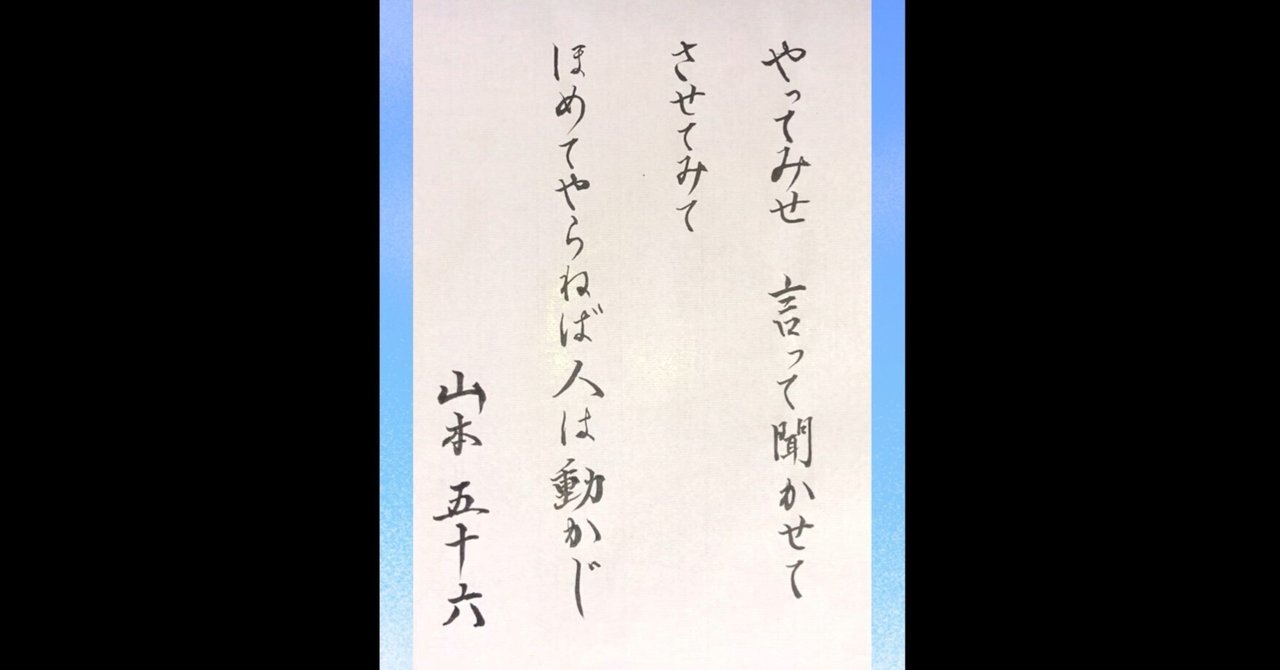 やってみせ　言って聞かせて
させてみて
ほめてやらねば人は動かじ
山本 五十六